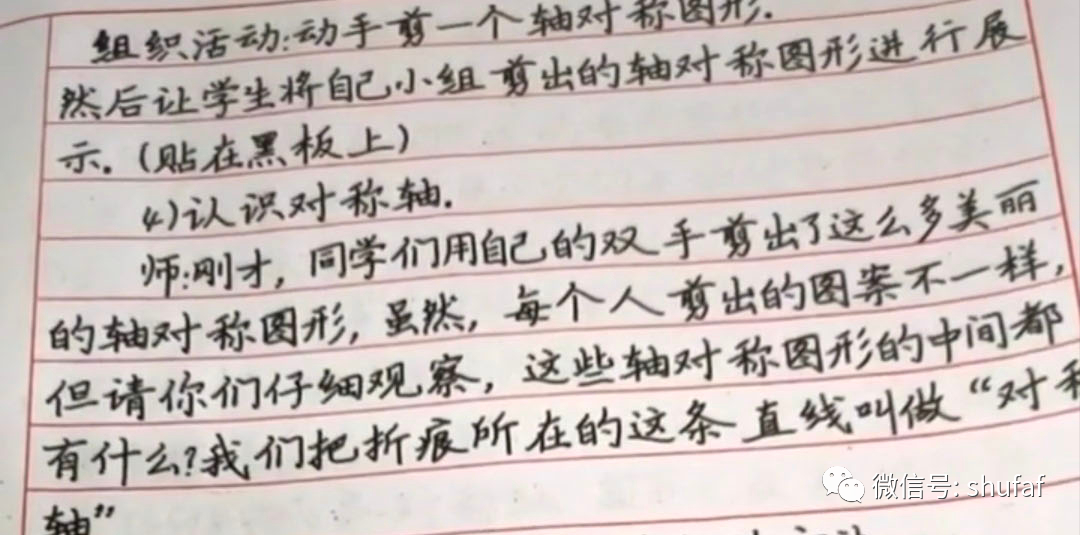 组织活动:动手剪一个轴对称图形.
然后让学生将自己小组剪出的轴对称图形进行展
示.(贴在黑板上)
4)认识对称轴.
师:刚才,同学们用自己的双手剪出了这么多美丽
的轴对称图形,虽然,每个人剪出的图案不一样,
但请你们仔细观察,这些轴对称图形的中间都
有什么?我们把折痕所在的这条直线叫做“对称
轴”
微信号: shufaf